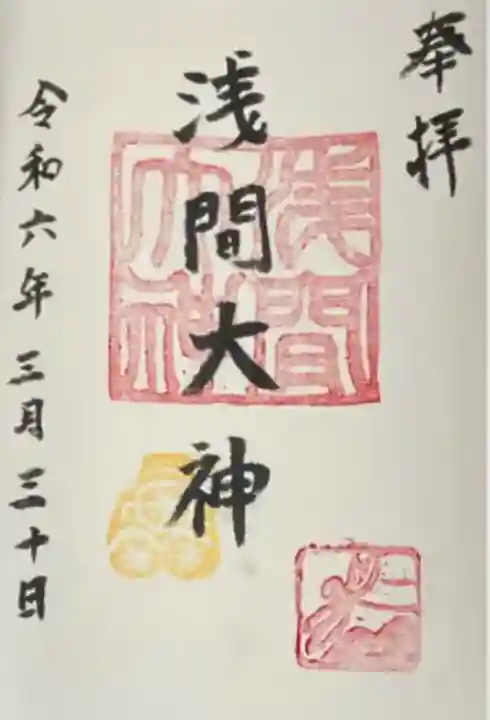 奉拝
浅間大神
浅間
大神
令和六年三月三十日